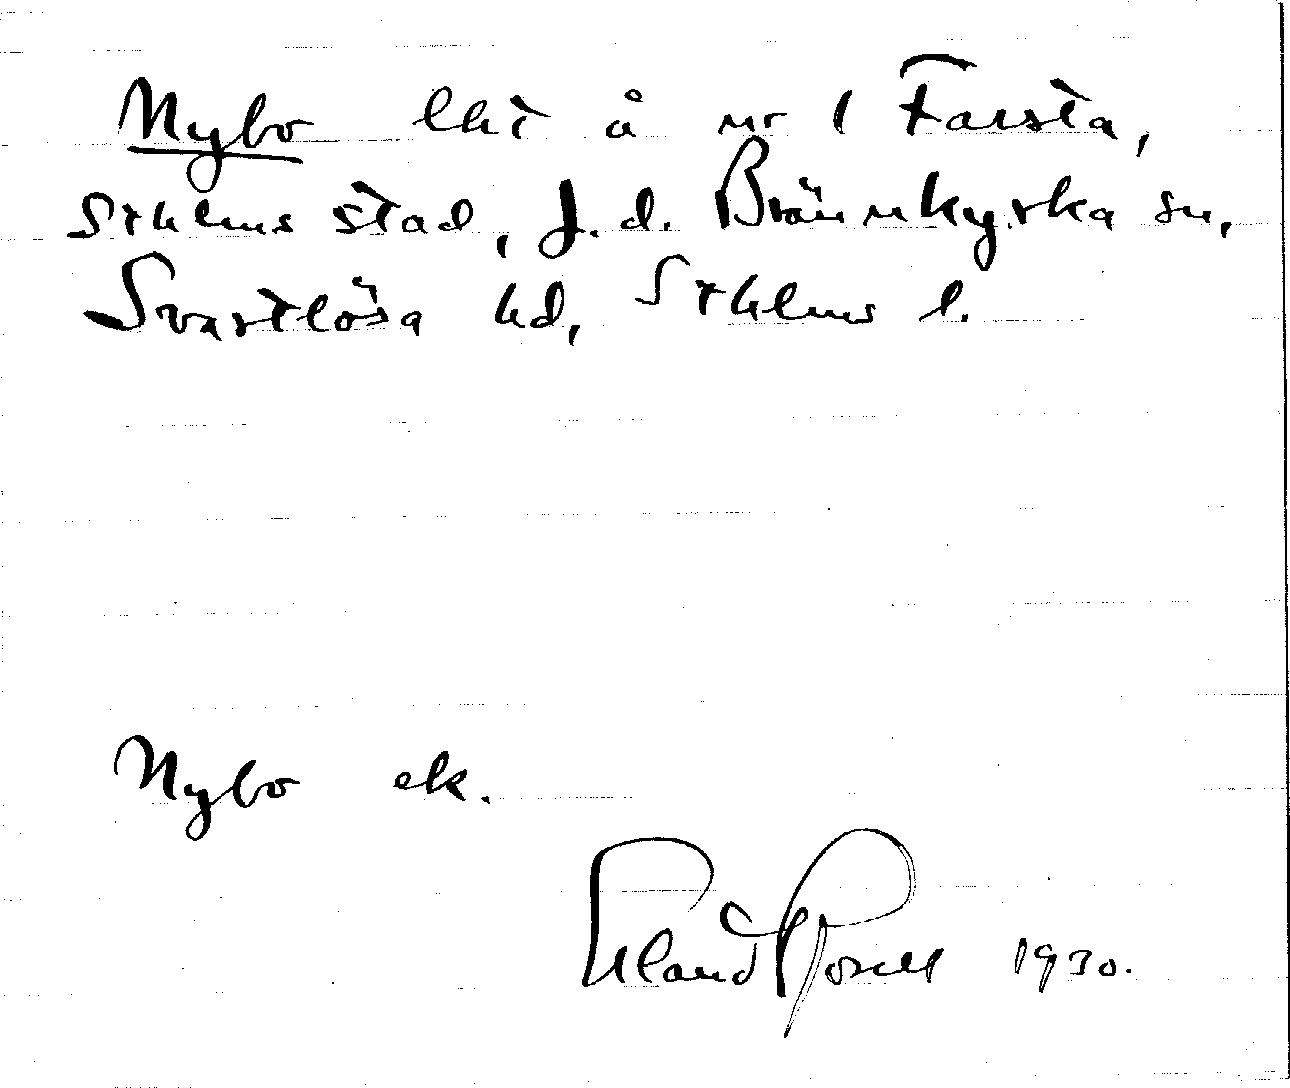 Nybo lht å nr 1 Farsta,
Sthlms stad, f.d. Brännkyrka sn,
Svartlösa hd, Sthlms l.
Nybo ek.
Erland Rosell 1930.